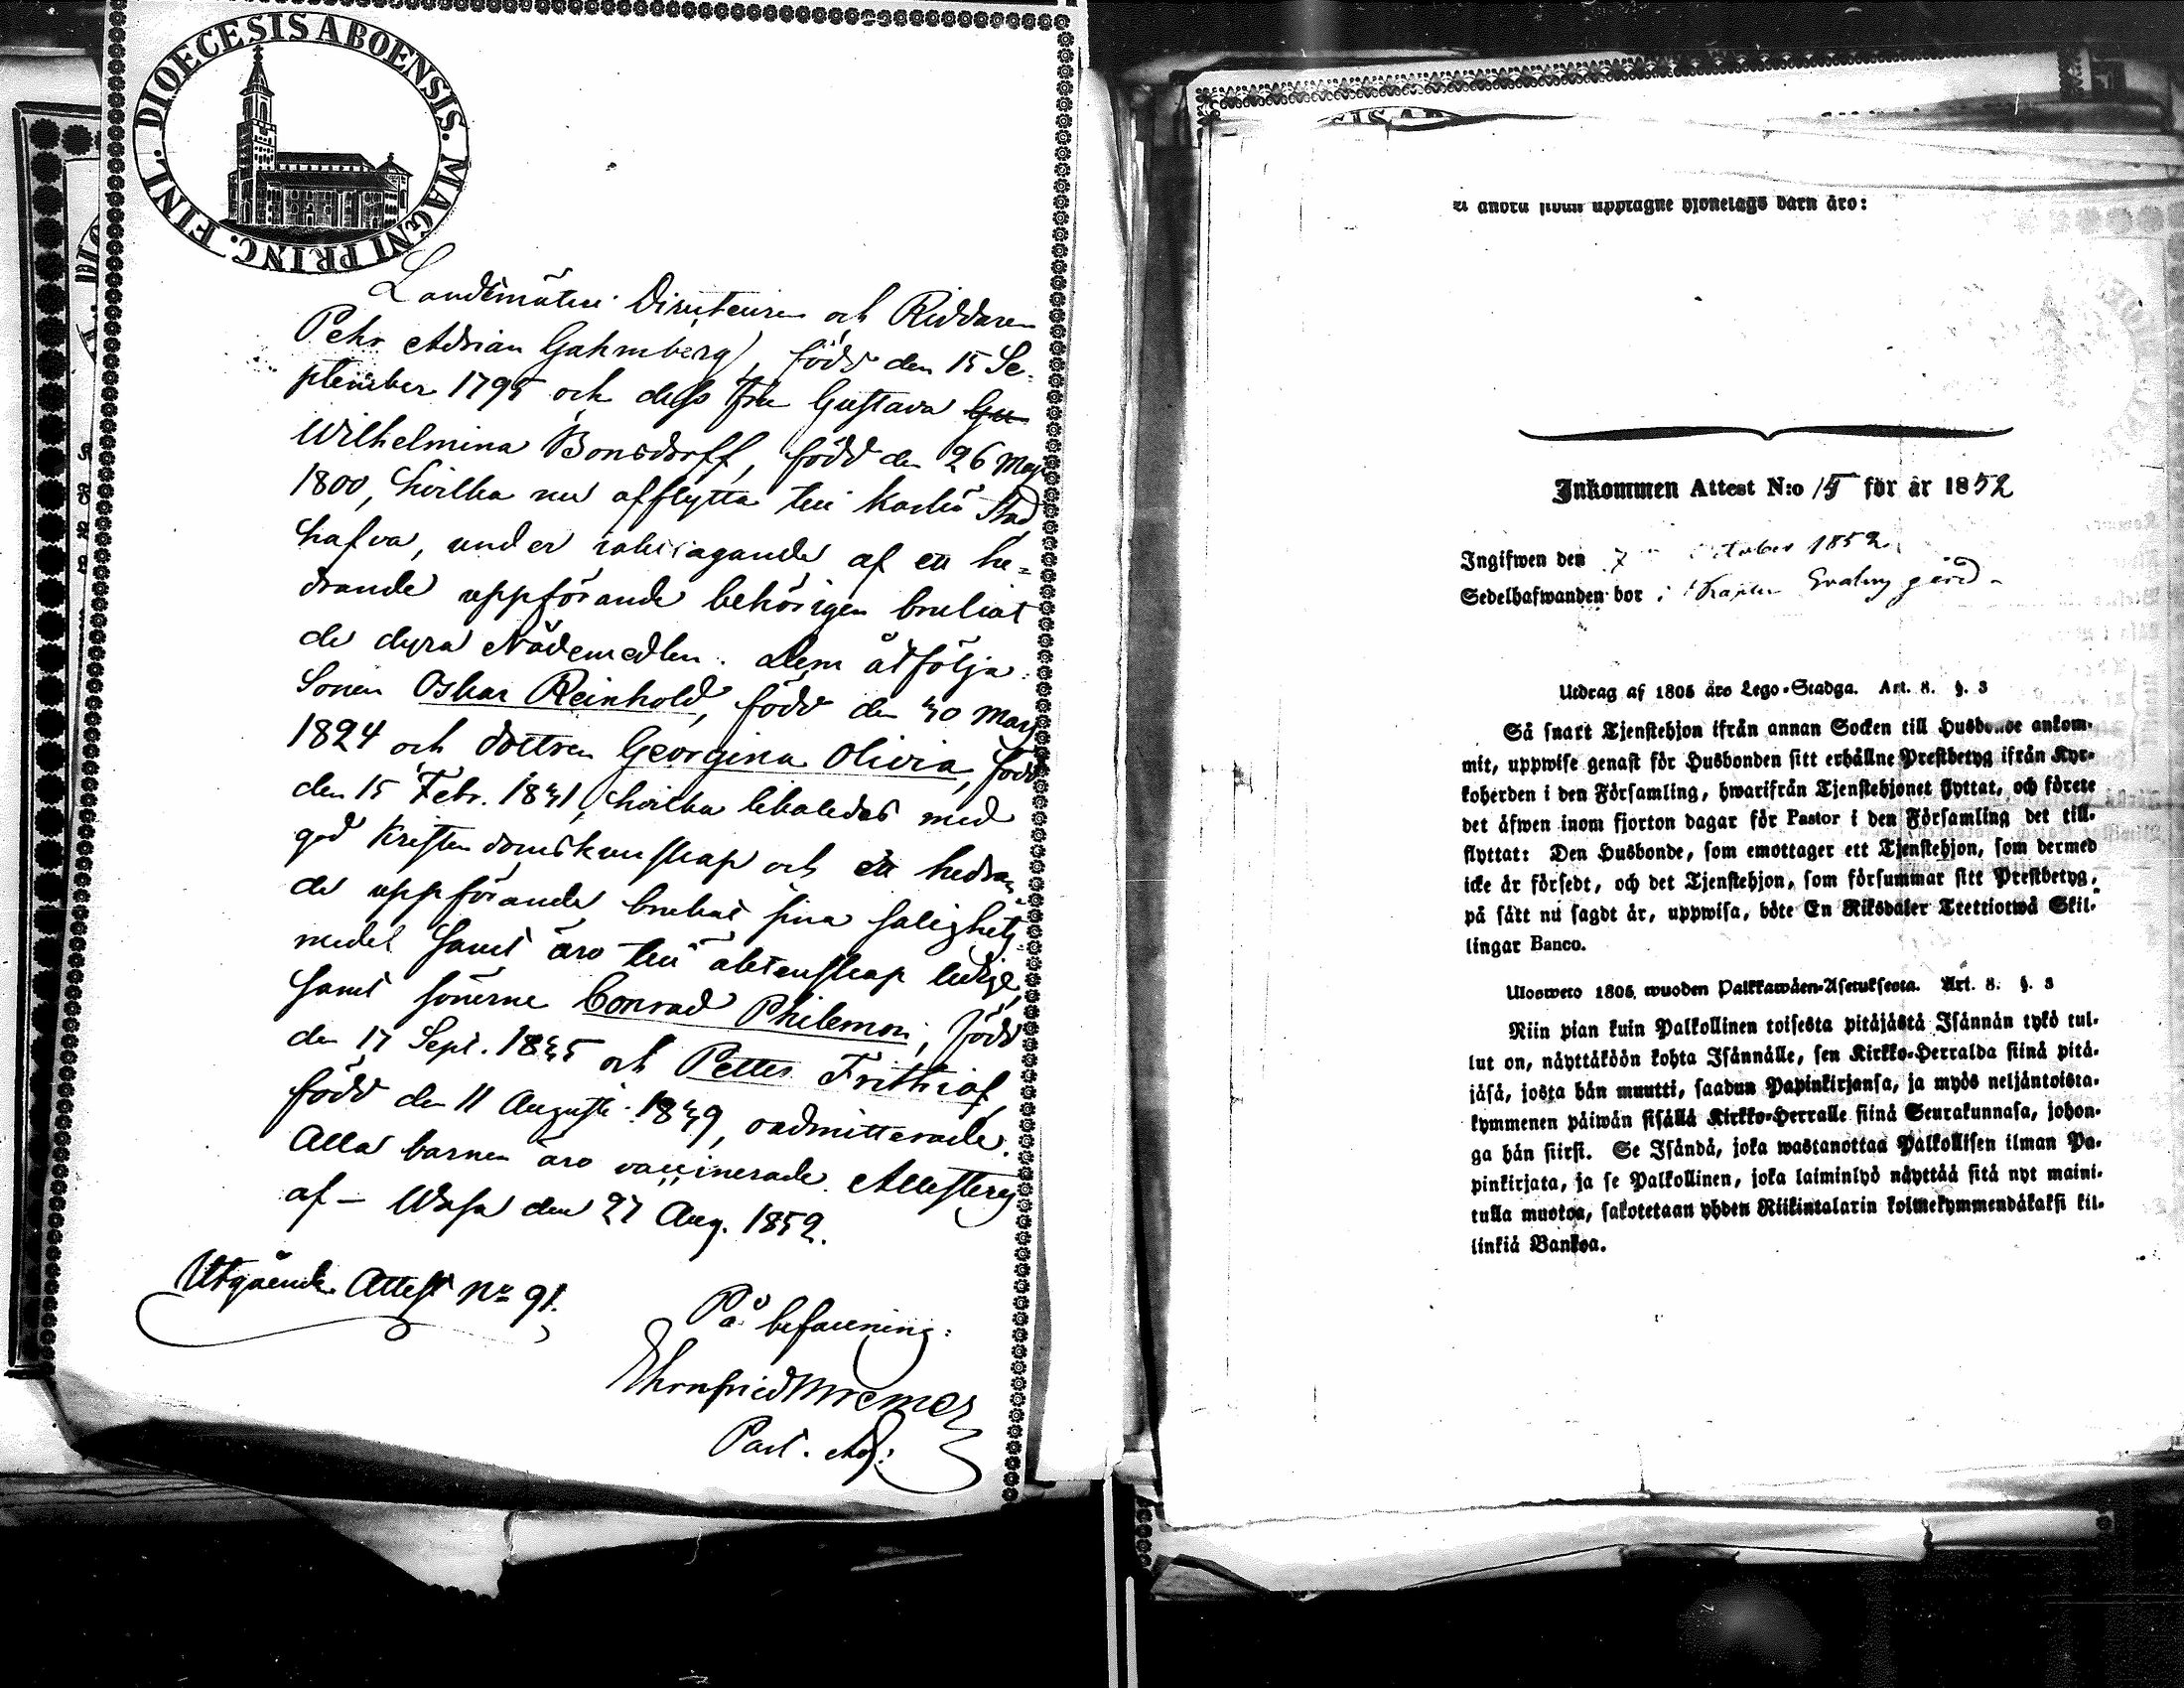 DIOECESIS ABOENSIS. MAGNI PRINC. FINL.
Landtmäteri Directeuren och Riddaren
Pehr Adrian Gahmberg, född den 15 Se-
ptember 1795 och dess Fru Gustava Gu
Wilhelmina Bonsdorff, född den 26 Maji
1800, hvilka nu afflytta till Karlö Stad
hafva, under iakttagande af ett he-
drande uppförande behörigen brukat
de dyra Nådemedlen. Dem åtfölja
Sonen Oskar Reinhold, född den 30 Mars
1824 och dottren Georgina Olivia, född
den 15 Febr. 1831, hvilka likaledes med
god Kristendomskunskap och ett hedran-
de uppförande brukat sina salighets
medel samt äro till äktenskap ledige,
samt sönerne Conrad Philemon, född
den 17 Sept. 1835 och Petter Frithiof,
född den 11 Augusti 1839, oadmitterade.
Alla barnen äro vaccinerade. Attesterar
af – Wasa den 27 Aug. 1852.
Utgående Attest No 91.
På befallning:
Past. Adj:
andra uppragne hjonelags barn äro:
Inkommen Attest N:o 15 för år 1852
Ingifwen den 7 October 1852
Sedelhafwanden bor i gård
Utdrag af 1805 års Lego-Stadga. Art. 8. §. 3
Så snart Tjenstehjon ifrån annan Socken till Husbonde ankom-
mit, uppwise genast för Husbonden sitt erhållne Prestbetyg ifrån Kyr-
koherden i den Församling, hwarifrån Tjenstehjonet flyttat, och förete
det äfwen inom fjorton dagar för Pastor i den Församling det till-
flyttat: Den Husbonde, som emottager ett Tjenstehjon, som dermed
icke är försedt, och det Tjenstehjon, som försummar sitt Prestbetyg,
på sätt nu sagdt är, uppwisa, böte En Riksdaler Trettiotwå Skil-
lingar Banco.
Ulosweto 1805. wuoden Palkkawäen-Asetuksesta. Art. 8. §. 3
Niin pian kuin Palkollinen toisesta pitäjästä Isännän tykö tul-
lut on, näyttäköön kohta Isännälle, sen Kirkko-Herralda siinä pitä-
jäsä, josta hän muutti, saadun Papinkirjansa, ja myös neljäntoista-
kymmenen päiwän sisällä Kirkko-Herralle siinä Seurakunnasa, johon-
ga hän siirsi. Se Isändä, joka wastanottaa Palkollisen ilman Pa-
pinkirjata, ja se Palkollinen, joka laiminlyö näyttää sitä nyt maini-
tulla muotoa, sakotetaan yhden Riikintalarin kolmekymmendäkaksi kil-
linkiä Bankoa.